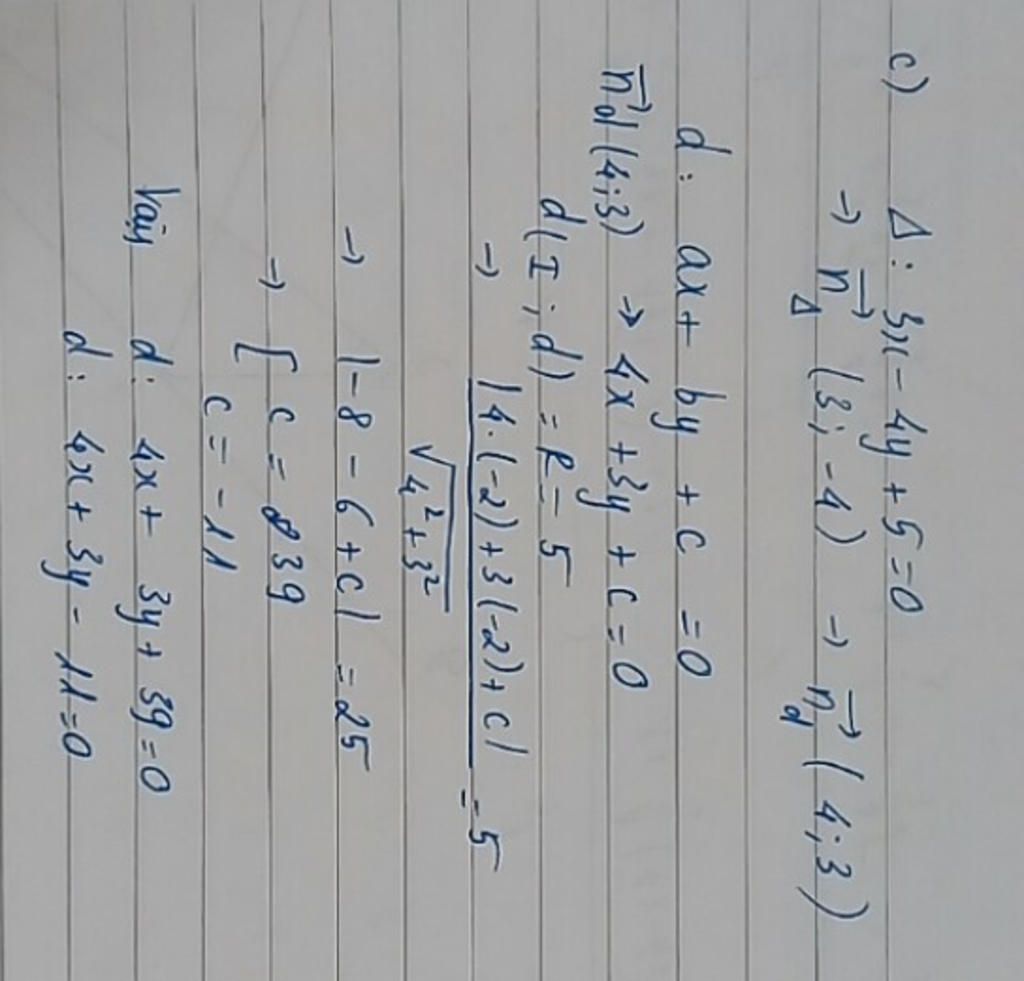 c) Δ: 3x - 4y + 5 = 0
→ n⃗_Δ (3; -4) → n⃗_d (4; 3)
d: ax + by + c = 0
n⃗_d (4;3) → 4x + 3y + c = 0
d(I; d) = R = 5
→ |4.(-2) + 3(-2) + c| / √(4² + 3²) = 5
→ |-8 - 6 + c| = 25
→ [ c = 39
c = -11
Vậy d: 4x + 3y + 39 = 0
d: 4x + 3y - 11 = 0